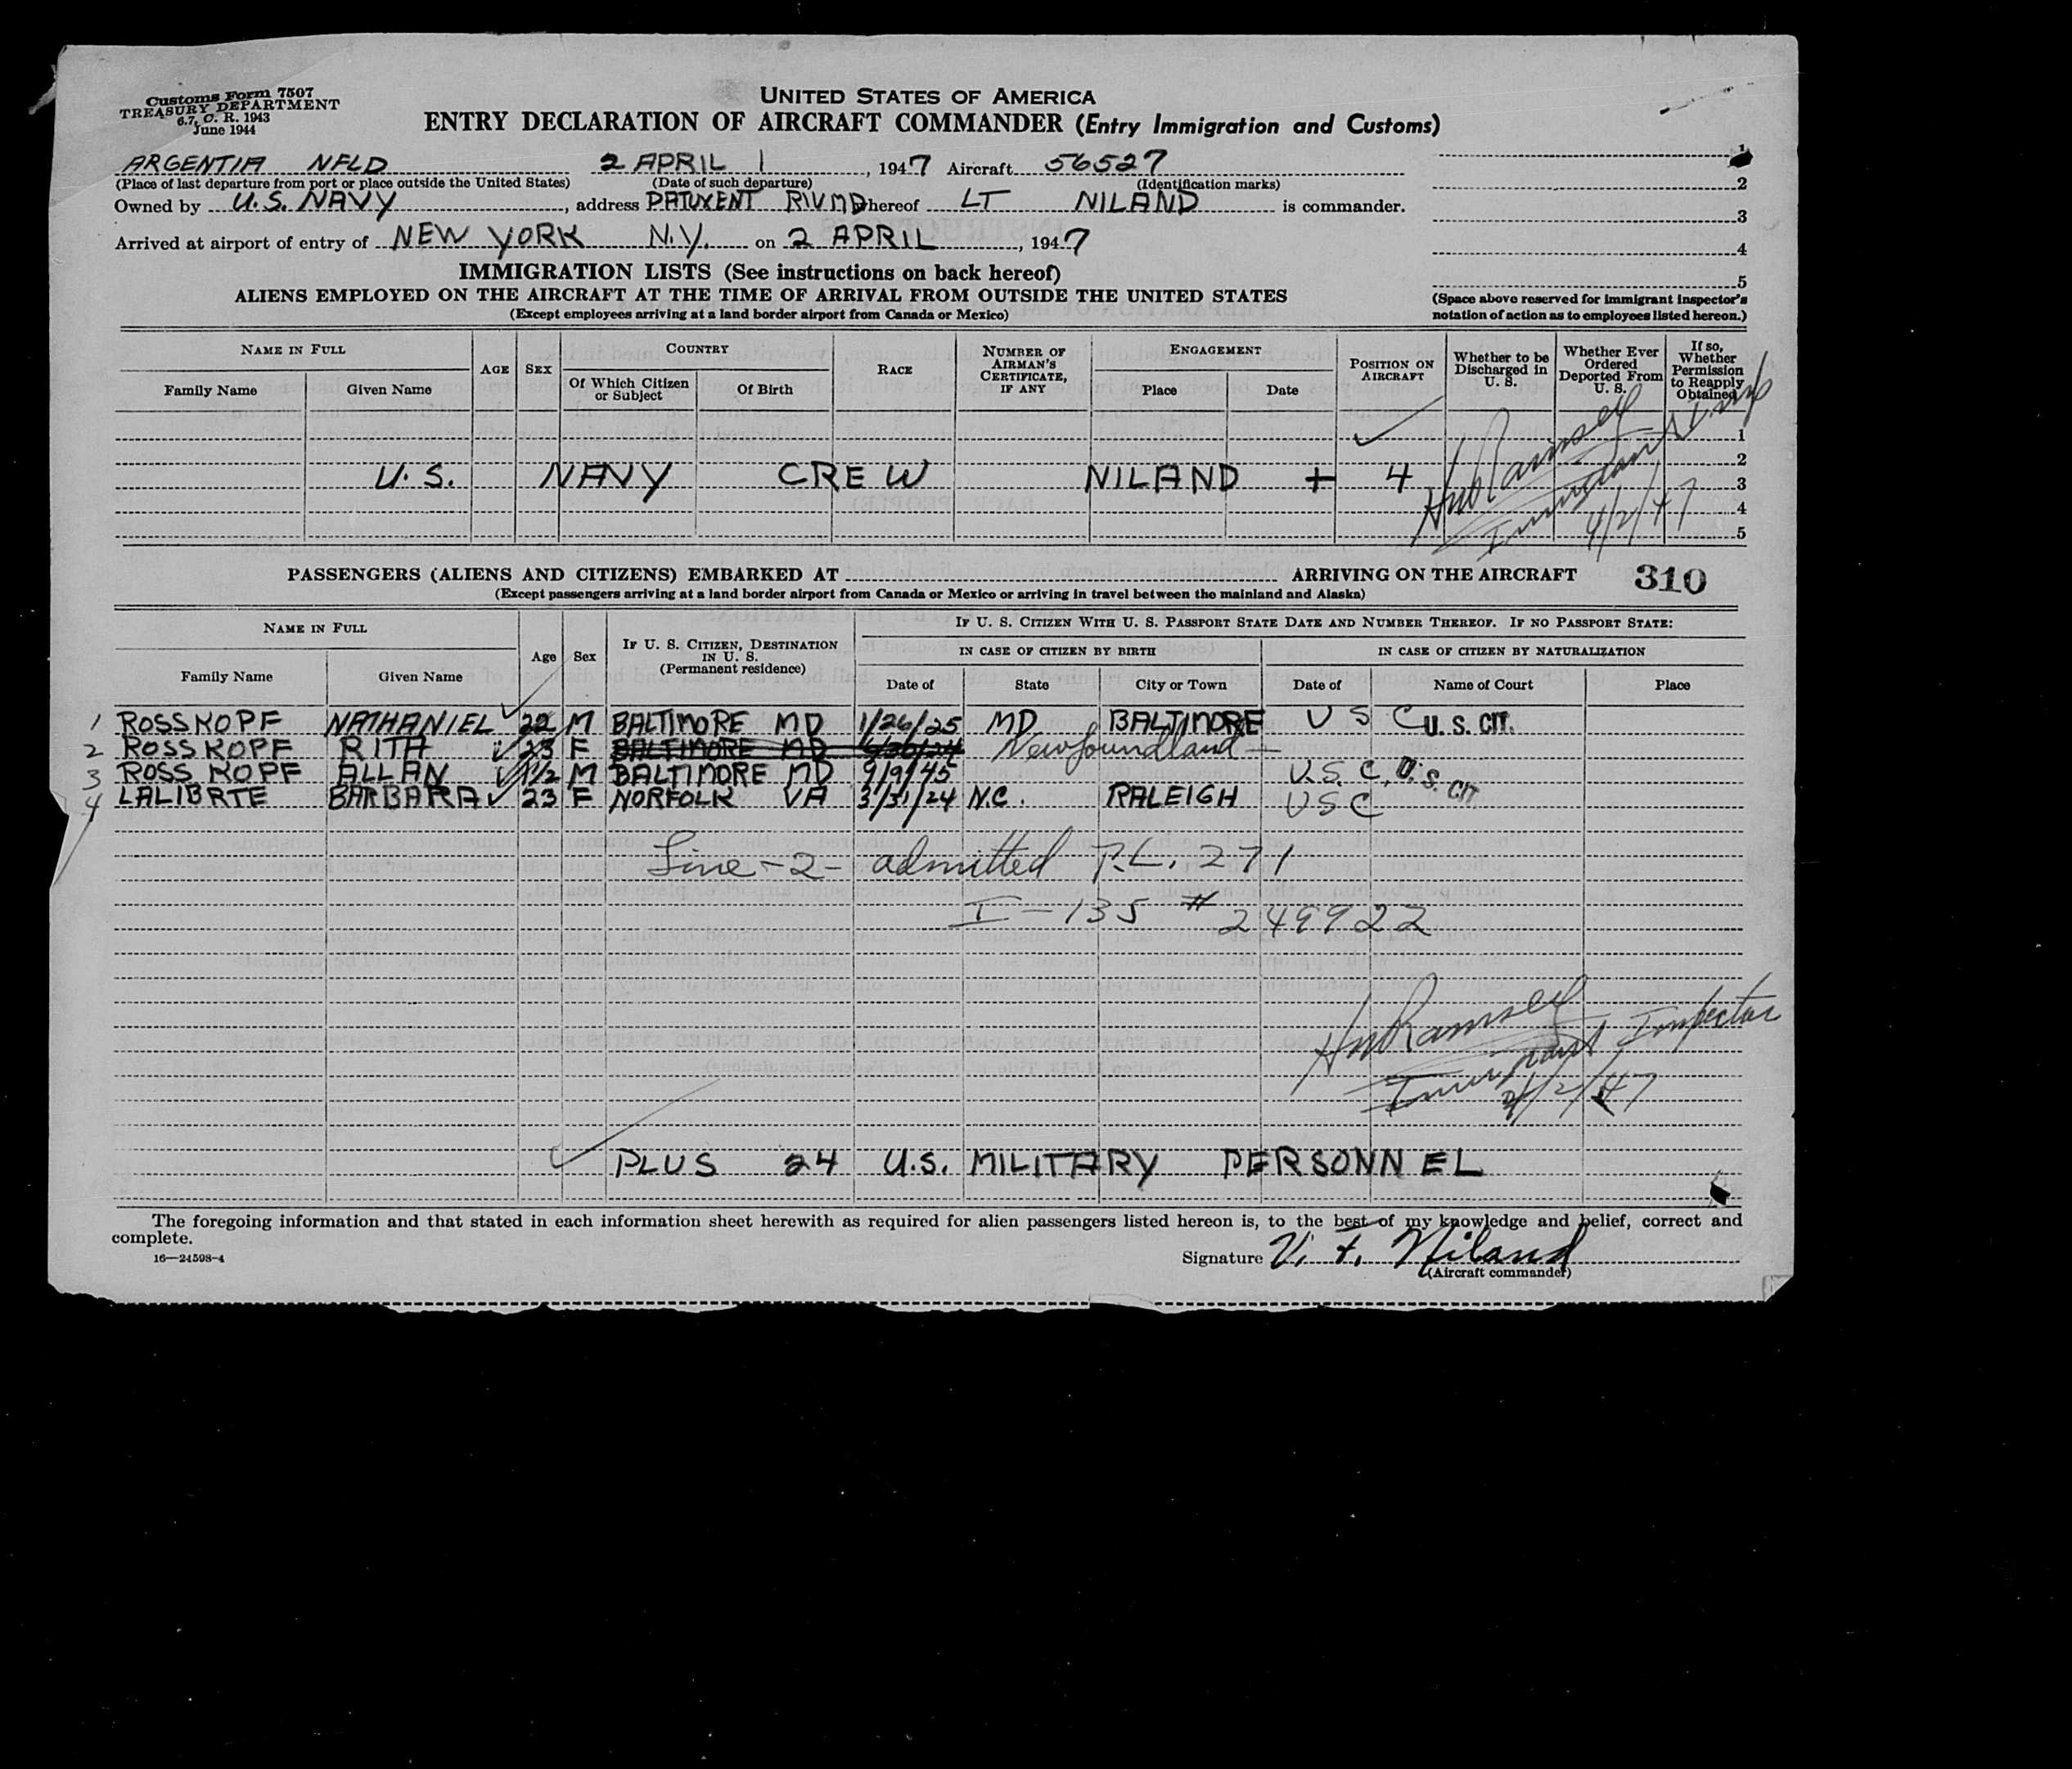 Customs Form 7507
TREASURY DEPARTMENT
6.7, C. R. 1943
June 1944
UNITED STATES OF AMERICA
ENTRY DECLARATION OF AIRCRAFT COMMANDER (Entry Immigration and Customs)
ARGENTIA NFLD 2 APRIL 1, 1947 Aircraft 56527
(Place of last departure from port or place outside the United States) (Date of such departure) (Identification marks)
Owned by U.S. NAVY, address PATUXENT RIV MD whereof LT NILAND is commander.
Arrived at airport of entry of NEW YORK N.Y. on 2 APRIL, 1947
1
2
3
4
5
(Space above reserved for immigrant inspector's
notation of action as to employees listed hereon.)
IMMIGRATION LISTS (See instructions on back hereof)
ALIENS EMPLOYED ON THE AIRCRAFT AT THE TIME OF ARRIVAL FROM OUTSIDE THE UNITED STATES
(Except employees arriving at a land border airport from Canada or Mexico)
NAME IN FULL
Family Name Given Name
AGE
SEX
COUNTRY
Of Which Citizen or Subject
Of Birth
RACE
NUMBER OF AIRMAN'S CERTIFICATE, IF ANY
ENGAGEMENT
Place Date
POSITION ON AIRCRAFT
Whether to be Discharged in U. S.
Whether Ever Ordered Deported From U. S.
If so, Whether Permission to Reapply Obtained
1
2
U.S. NAVY CREW NILAND + 4 3
4
5
Ramsey
Immigrant Insp
4/2/47
PASSENGERS (ALIENS AND CITIZENS) EMBARKED AT ARRIVING ON THE AIRCRAFT 310
(Except passengers arriving at a land border airport from Canada or Mexico or arriving in travel between the mainland and Alaska)
NAME IN FULL
Family Name Given Name
Age
Sex
IF U. S. CITIZEN, DESTINATION IN U. S. (Permanent residence)
IF U. S. CITIZEN WITH U. S. PASSPORT STATE DATE AND NUMBER THEREOF. IF NO PASSPORT STATE:
IN CASE OF CITIZEN BY BIRTH
Date of State City or Town
IN CASE OF CITIZEN BY NATURALIZATION
Date of Name of Court Place
1 ROSSKOPF NATHANIEL 22 M BALTIMORE MD 1/26/25 MD BALTIMORE U S C U. S. CIT.
2 ROSSKOPF RITA 23 F BALTIMORE MD Newfoundland
3 ROSSKOPF ALLAN 1 1/2 M BALTIMORE MD 9/9/45 U.S.C. U. S. CIT
4 LALIBRTE BARBARA 23 F NORFOLK VA 3/31/24 N.C. RALEIGH USC
Line -2- admitted P.L. 271
I-135 # 249922
Ramsey
Immigrant Inspector
4/2/47
PLUS 24 U.S. MILITARY PERSONNEL
The foregoing information and that stated in each information sheet herewith as required for alien passengers listed hereon is, to the best of my knowledge and belief, correct and
complete.
16—24598-4
Signature V. F. Niland
(Aircraft commander)